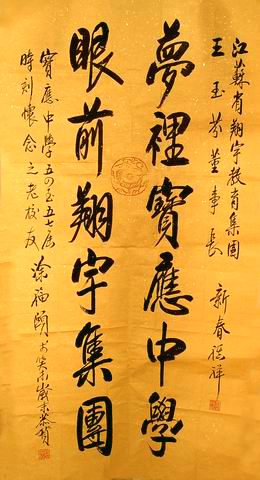 江蘇省翔宇教育集團
王玉芬董事長
新春禧祥
夢裡寶應中學
眼前翔宇集團
寶應中學五四至五七届
時刻懷念之老校友
徐福頤 歲末恭賀